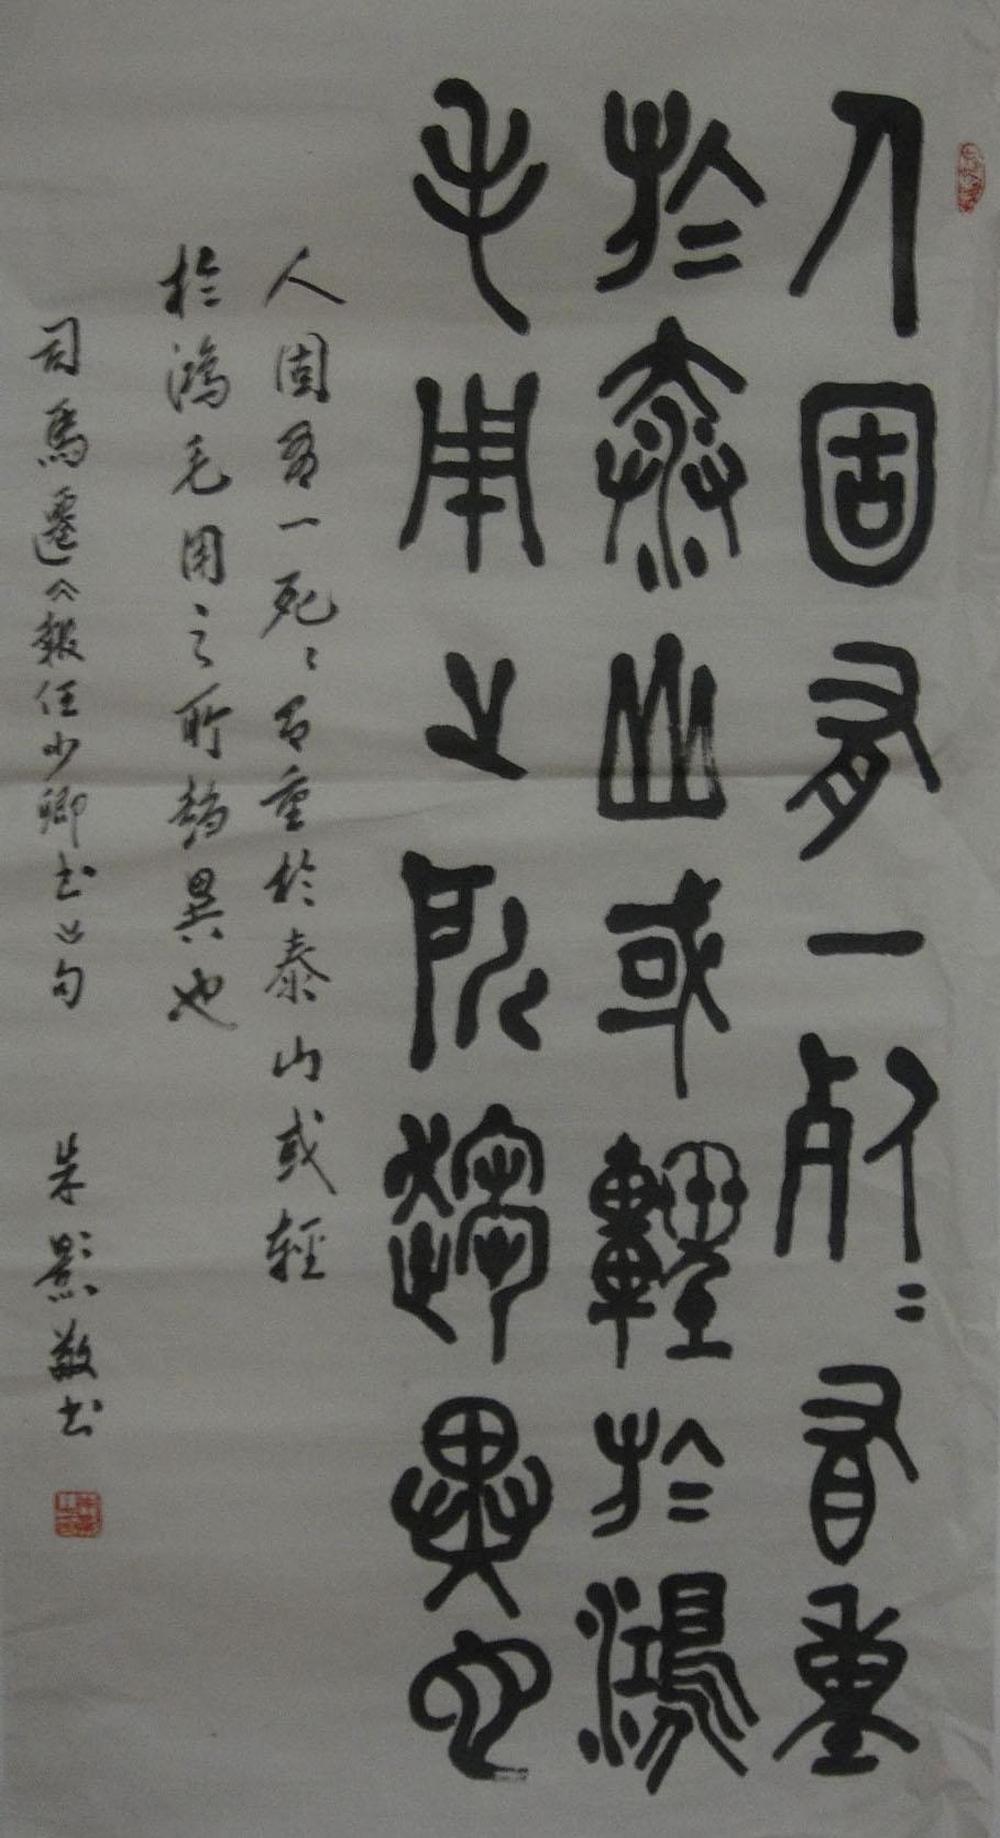 人固有一死〻有重
於泰山或輕於鴻
毛用之所趨異也
人固有一死〻有重於泰山或輕
於鴻毛用之所趨異也
司馬遷《報任少卿書》句 朱影敬书